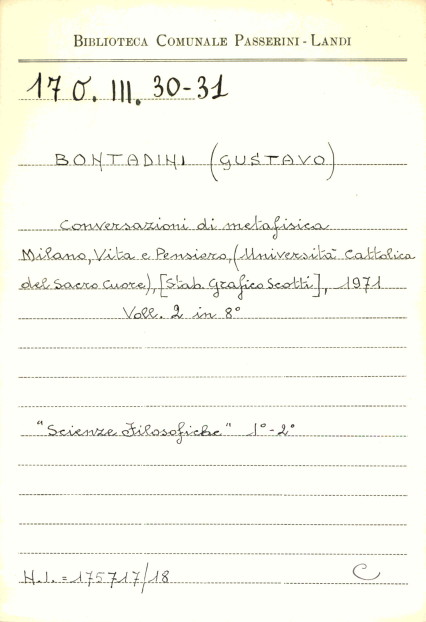 BIBLIOTECA COMUNALE PASSERINI - LANDI
17 O. III. 30-31
BONTADINI (GUSTAVO)
Conversazioni di metafisica
Milano, Vita e Pensiero, (Università Cattolica
del Sacro Cuore), [Stab. Grafico Scotti], 1971
Voll. 2 in 8°
"Scienze Filosofiche" 1°-2°
N.I. = 175717/18
C